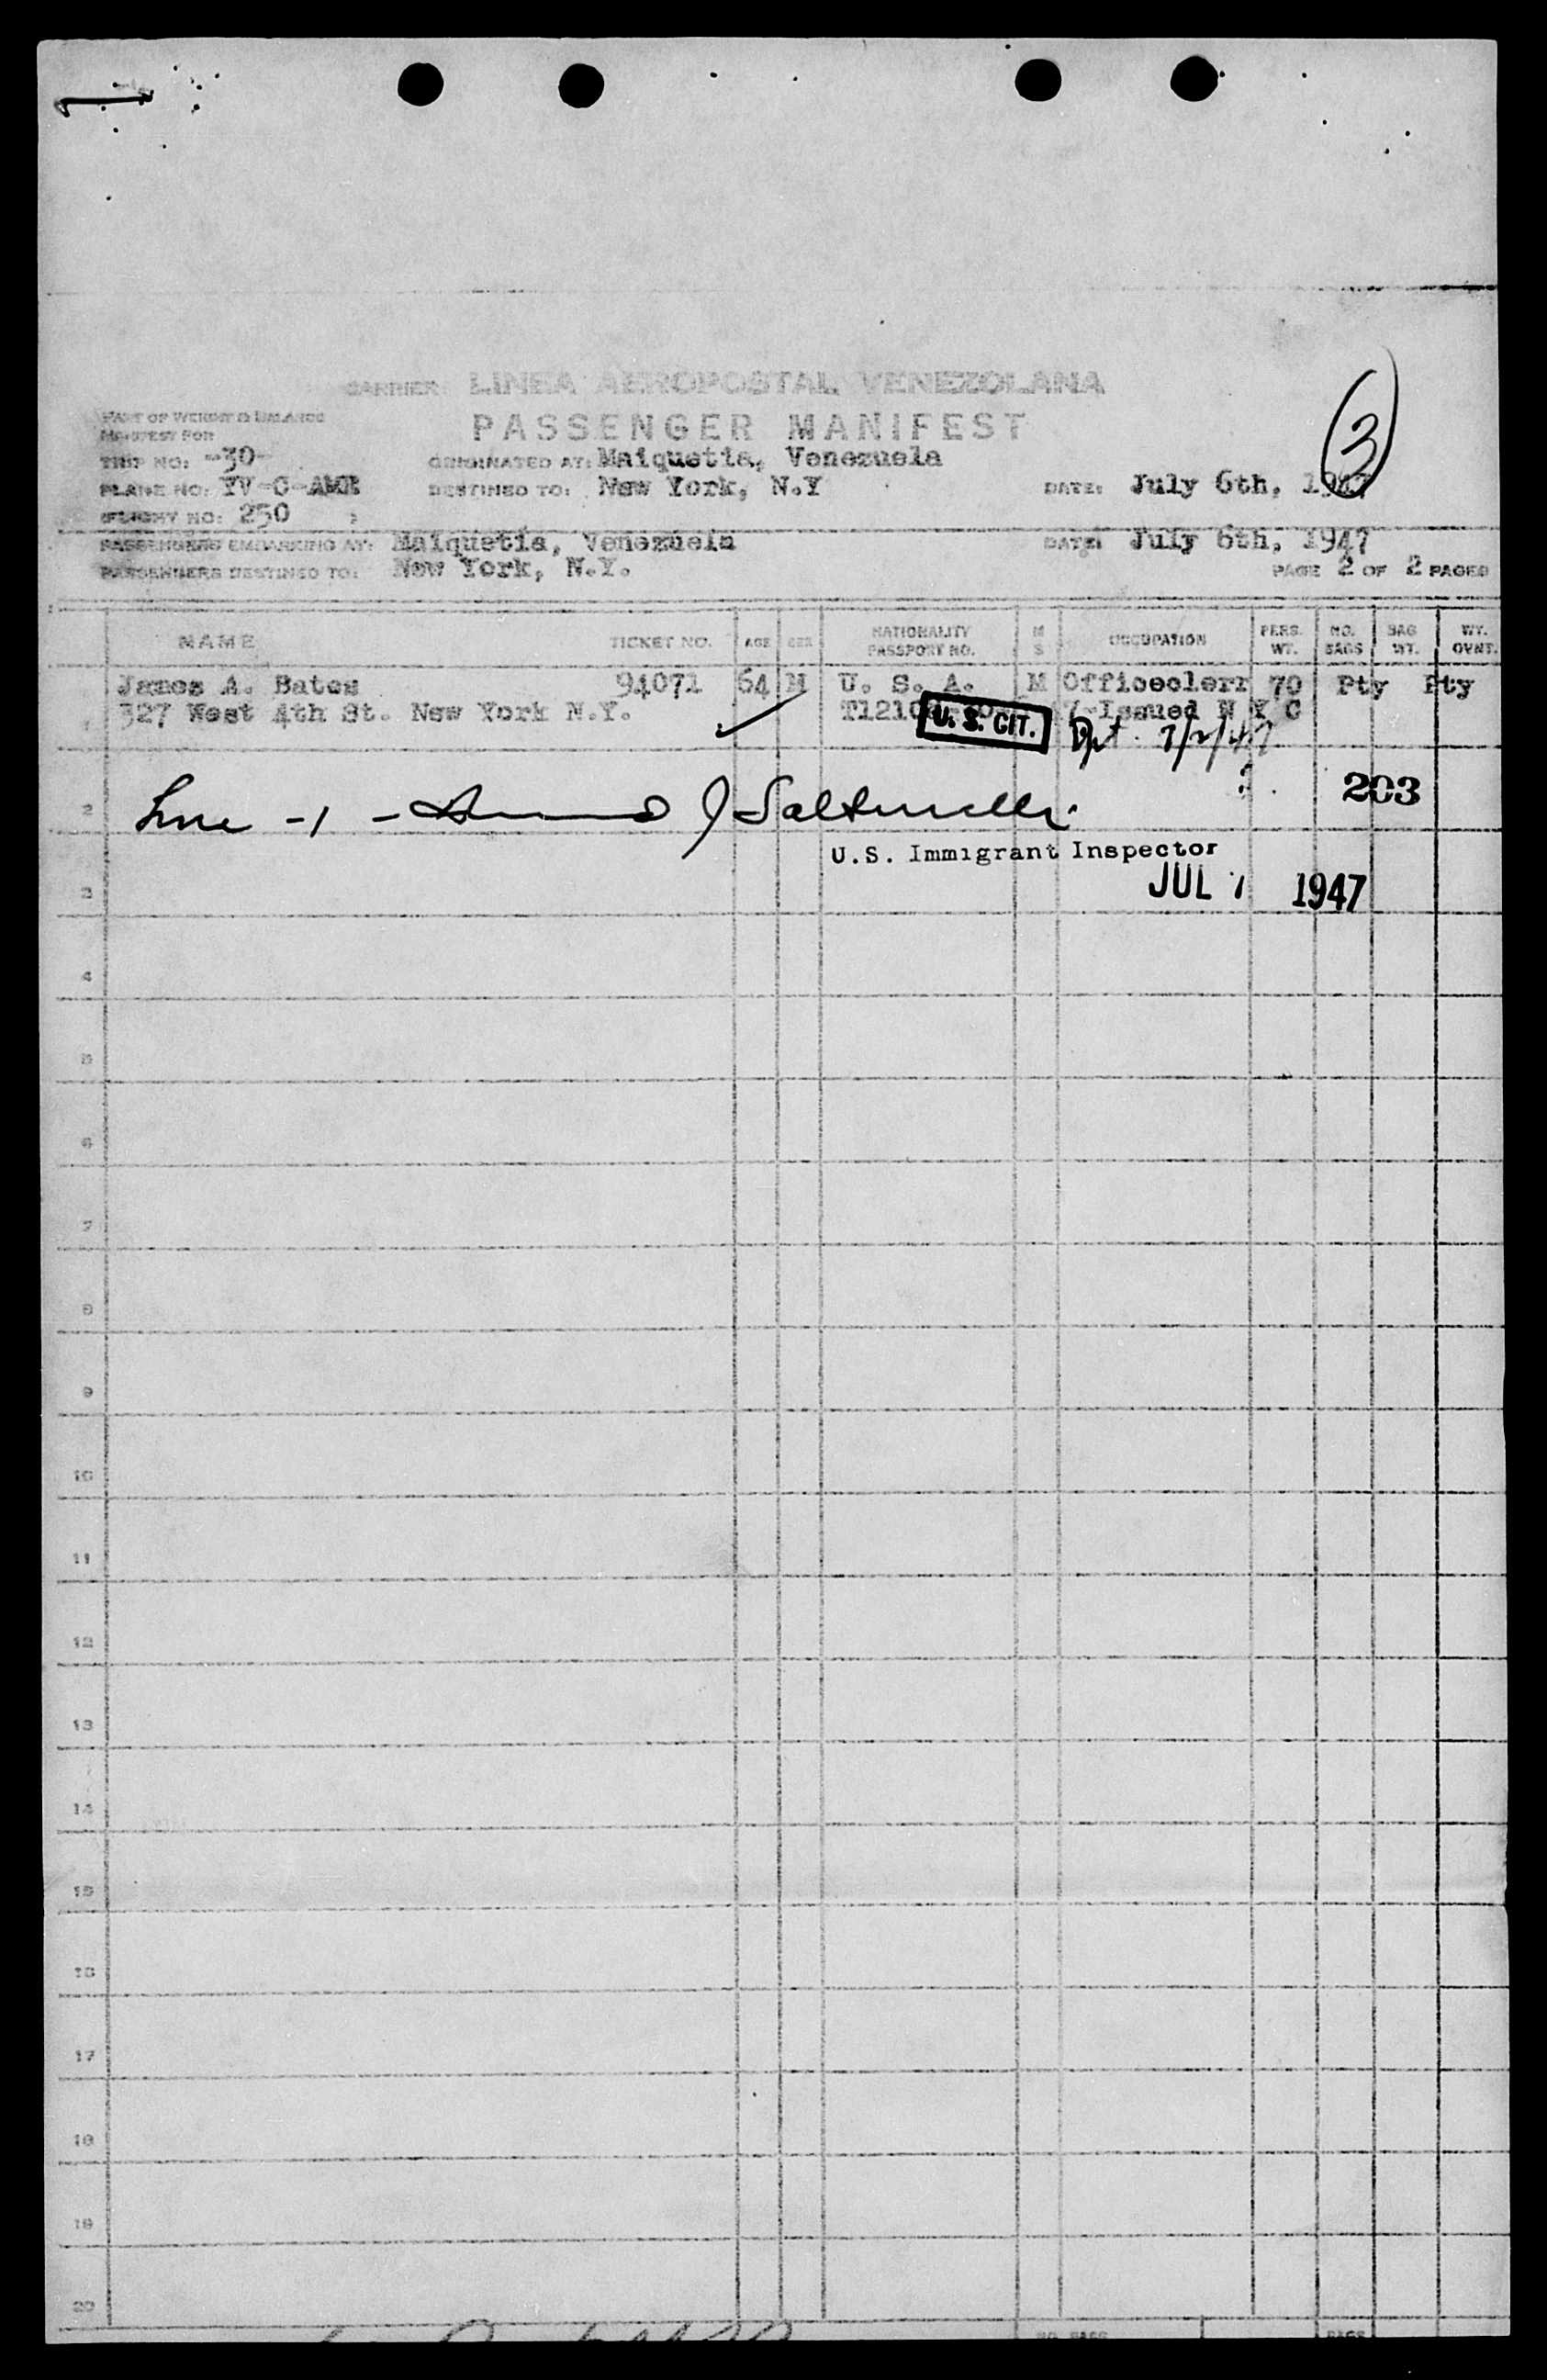 CARRIER: LINEA AEROPOSTAL VENEZOLANA
PART OF WEIGHT & BALANCE
MANIFEST FOR
PASSENGER MANIFEST
3
TRIP NO: -30-
ORIGINATED AT: Maiquetia, Venezuela
PLANE NO: YV-C-AMR
DESTINED TO: New York, N.Y
DATE: July 6th, 1947
FLIGHT NO: 250
PASSENGERS EMBARKING AT: Maiquetia, Venezuela
DATE: July 6th, 1947
PASSENGERS DESTINED TO: New York, N.Y.
PAGE 2 OF 2 PAGES
NAME TICKET NO. AGE SEX NATIONALITY PASSPORT NO. M S OCCUPATION PERS. WT. NO. BAGS BAG WT. WT. OVWT.
James A. Bates 94071 64 M U. S. A. M Officeclerr 70 Pty Pty
1 327 West 4th St. New York N.Y. Issued N Y C
U. S. CIT.
2 Line -1- J Salturelli
203
U.S. Immigrant Inspector
3 JUL 7 1947
4
5
6
7
8
9
10
11
12
13
14
15
16
17
18
19
20
NO. BAGS